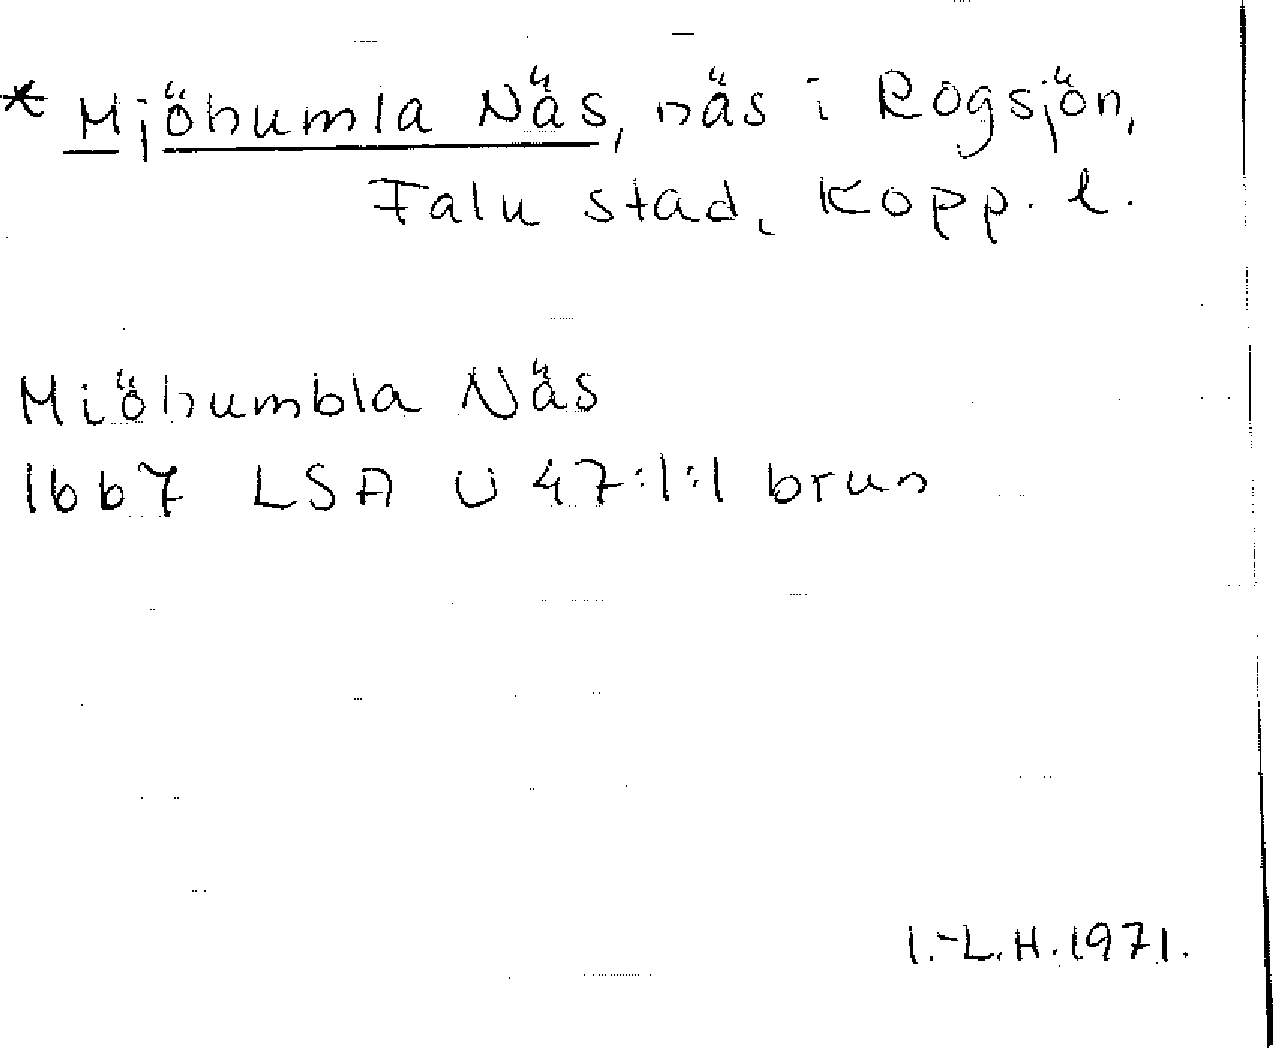 * Mjöhumla Näs, näs i Rogsjön,
Falu stad, Kopp. l.
Miöhumbla Näs
1667 LSA U 47:1:1 brun
I.-L.H. 1971.